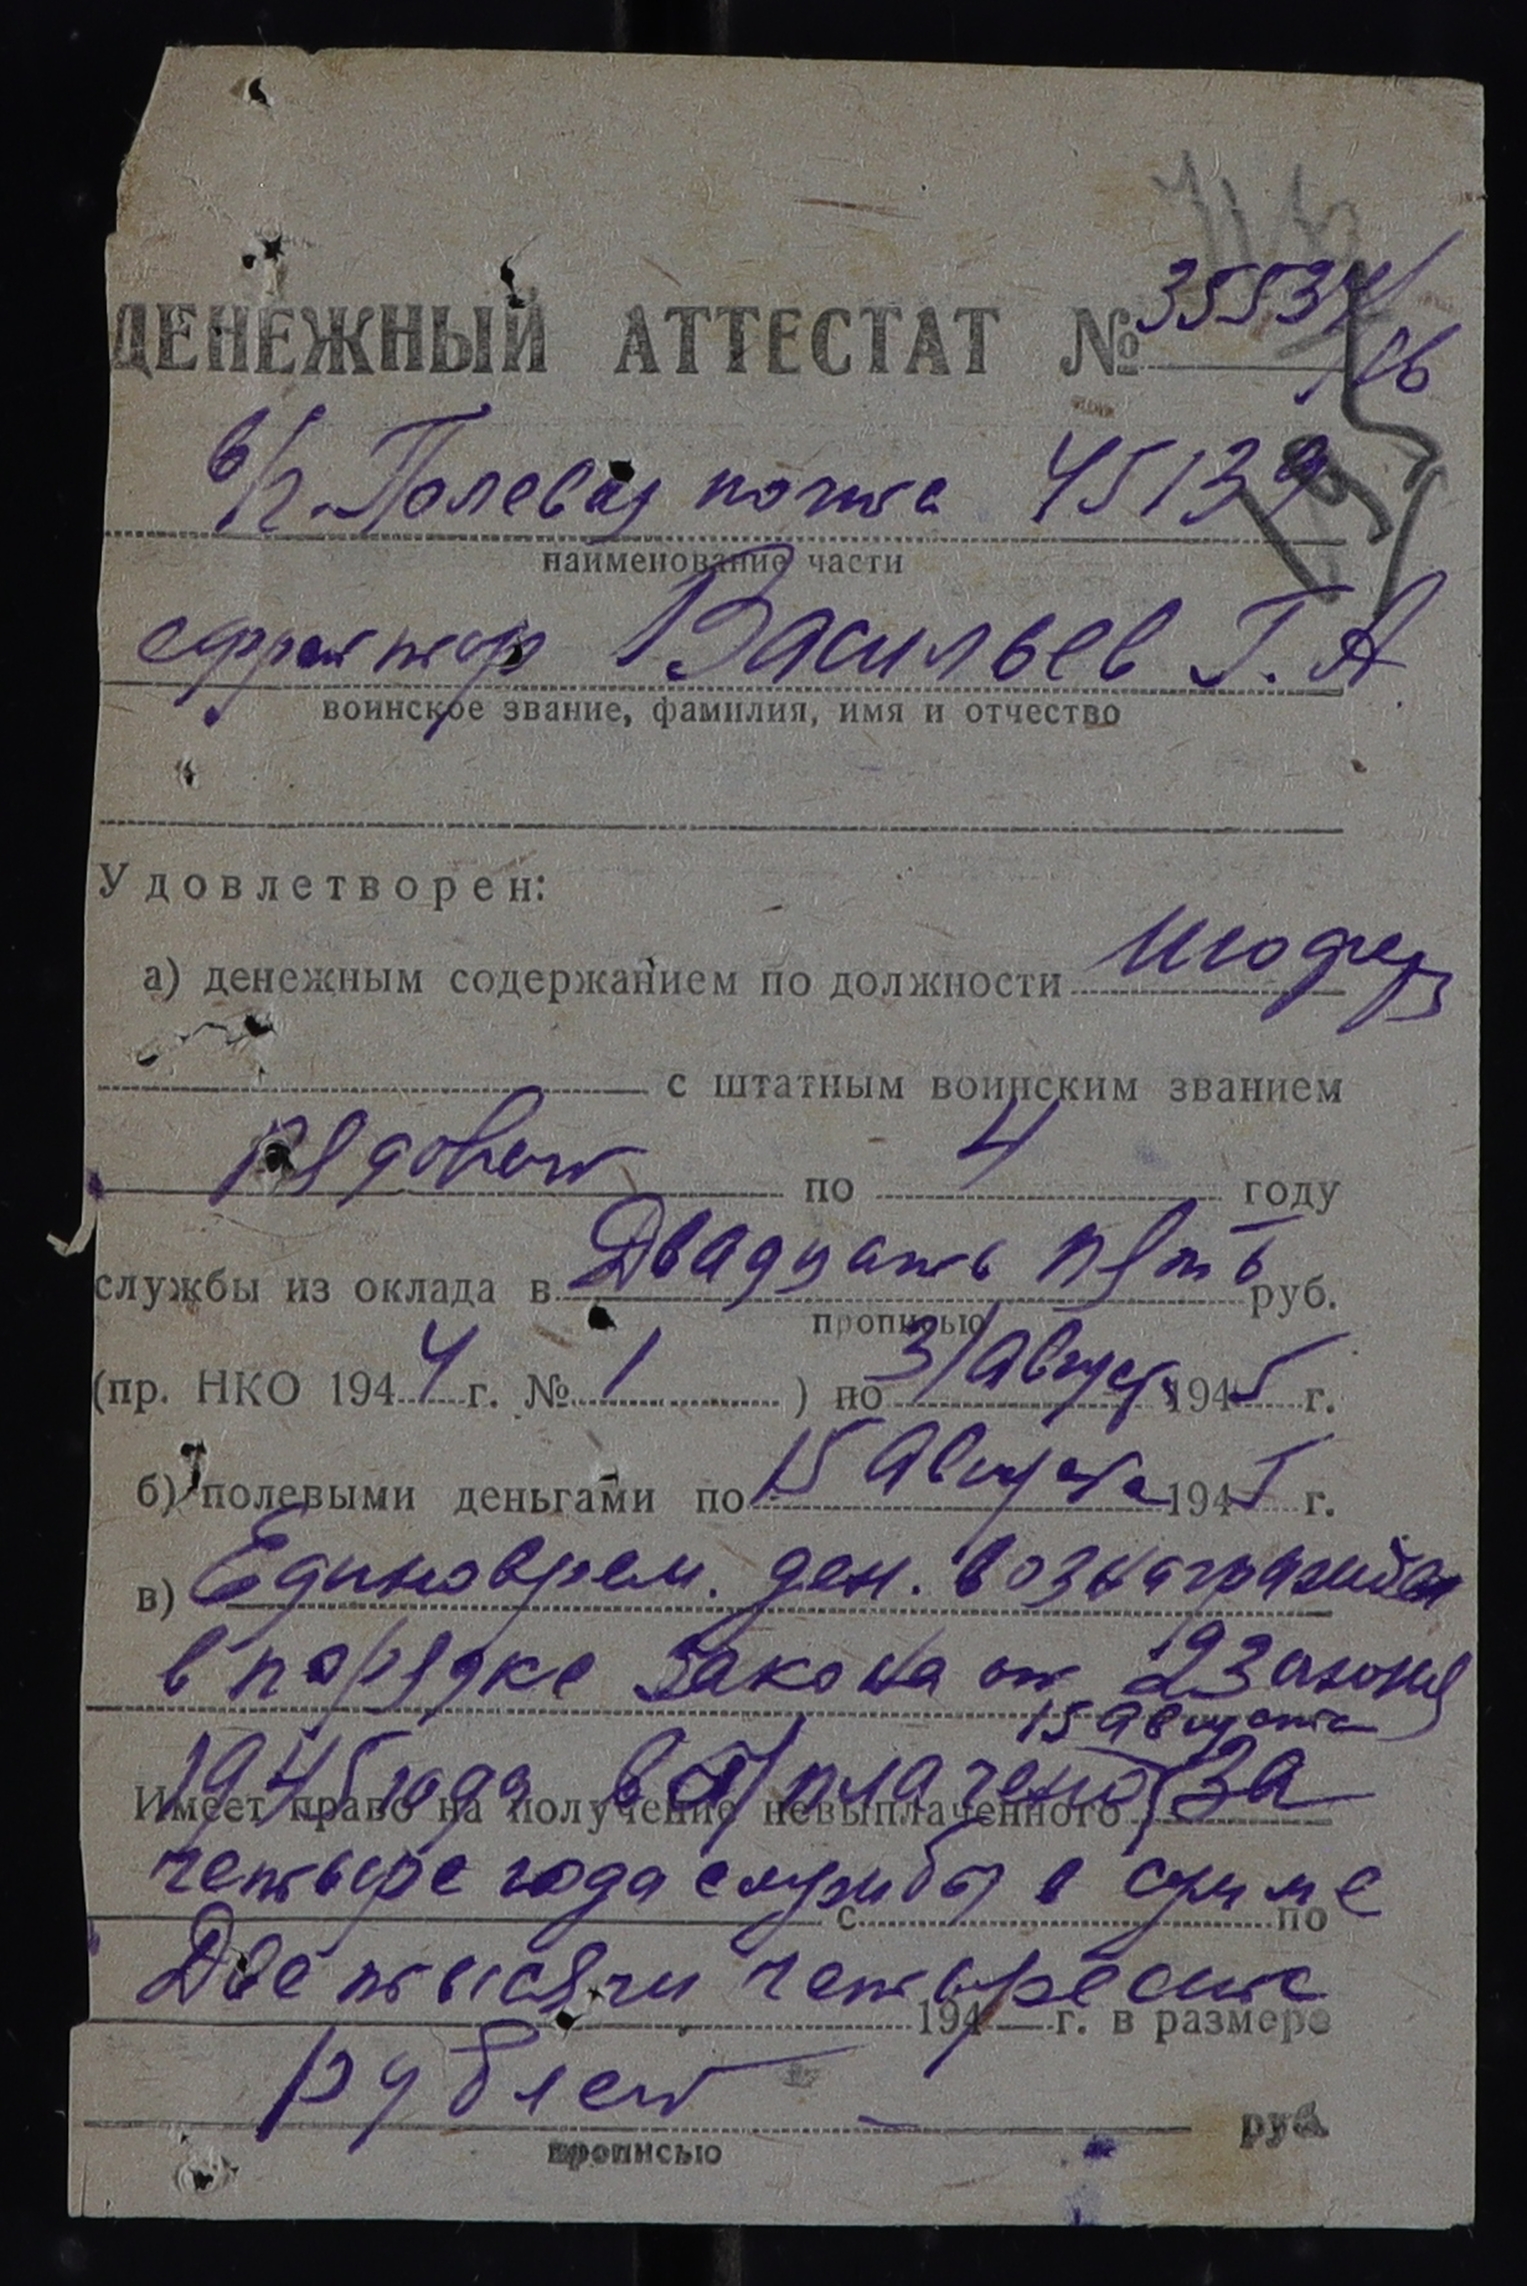 ДЕНЕЖНЫЙ АТТЕСТАТ № 35534/
в/ч. Полевая почта 45139
наименование части
ефрейтор Васильев Г. А.
воинское звание, фамилия, имя и отчество
Удовлетворен:
а) денежным содержанием по должности шофера
с штатным воинским званием
рядовой по 4 году
службы из оклада в Двадцать пять руб.
прописью
(пр. НКО 1944 г. № 1 ) по 31 августа 1945 г.
б) полевыми деньгами по 15 августа 1945 г.
в) Единоврем. ден. вознагражден
в порядке закона от 23 июня
15 августа
1945 года выплачено за
Имеет право на получение невыплаченного
четыре года службы в сумме
с по
Две тысячи четыреста
194 г. в размере
рублей
руб.
прописью